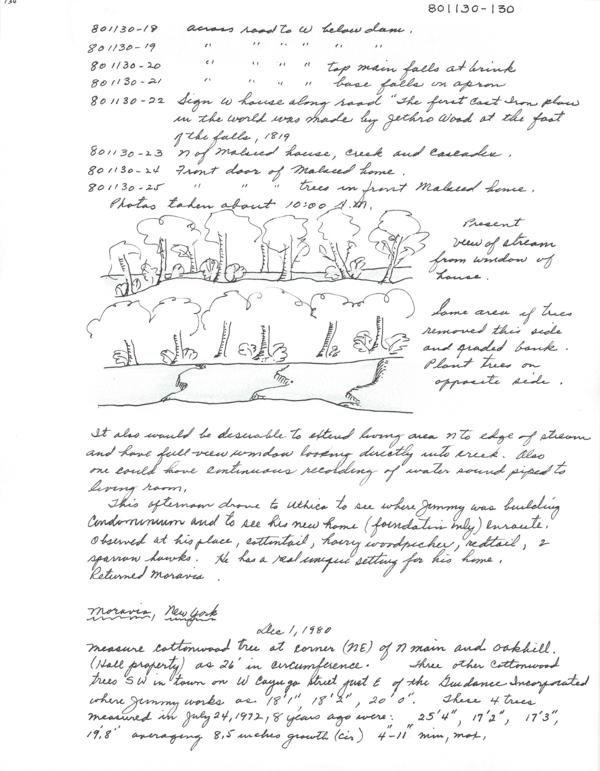 136
801130-130
801130-18 across road to W below dam.
801130-19 " " " " " "
801130-20 " " " " top main falls at brink
801130-21 " " " " base falls on apron
801130-22 Sign W house along road "The first Cast Iron plow
in the world was made by Jethro Wood at the foot
of the falls, 1819
801130-23 N of Malseed house, creek and Cascades.
801130-24 Front door of Malseed home.
801130-25 " " " trees in front Malseed home.
Photos taken about 10:00 A.M.
Present
view of stream
from window of
house.
Same area if trees
removed this side
and graded bank.
Plant trees on
opposite side.
It also would be desirable to extend living area N to edge of stream
and have full view window looking directly into creek. Also
one could have continuous recording of water sound piped to
living room.
This afternoon drove to Ithica to see where Jimmy was building
Condominium and to see his new home (foundation only) Enroute.
Observed at his place, cottontail, hairy woodpecker, redtail, 2
sparrow hawks. He has a real unique setting for his home.
Returned Moravia.
Moravia, New York
Dec 1, 1980
Measure cottonwood tree at corner (NE) of N main and Oakhill.
(Hall property) as 26' in circumference. Three other Cottonwood
trees SW in town on W Cayuga Street just E of the Guidance Incorporated
where Jimmy works as 18'1", 18'2", 20'0". These 4 trees
measured in July 24, 1972, 8 years ago were: 25'4", 17'2", 17'3",
19'8" averaging 8.5 inches growth (cir) 4"-11" min, max.